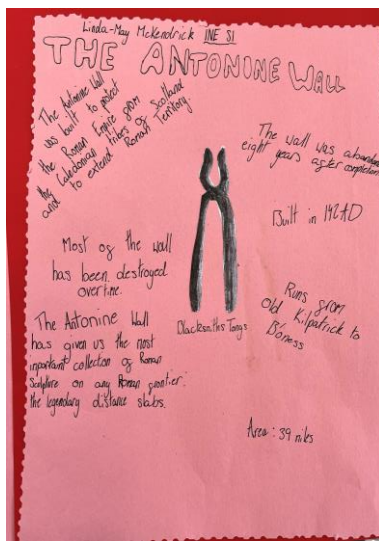 Linda-May McKendrick INE S1
THE ANTONINE WALL
The Antonine Wall
was built to protect
the Roman Empire from
the Caledonian tribes of Scotland
and to extend Roman Territory.
The wall was abandoned
eight years after completion
Built in 142AD
Most of the wall
has been destroyed
overtime.
Runs from
Old Kilpatrick to
Bo'ness
Blacksmiths Tongs
The Antonine Wall
has given us the most
important collection of Roman
Sculpture on any Roman frontier:
the legendary distance slabs.
Area: 39 miles